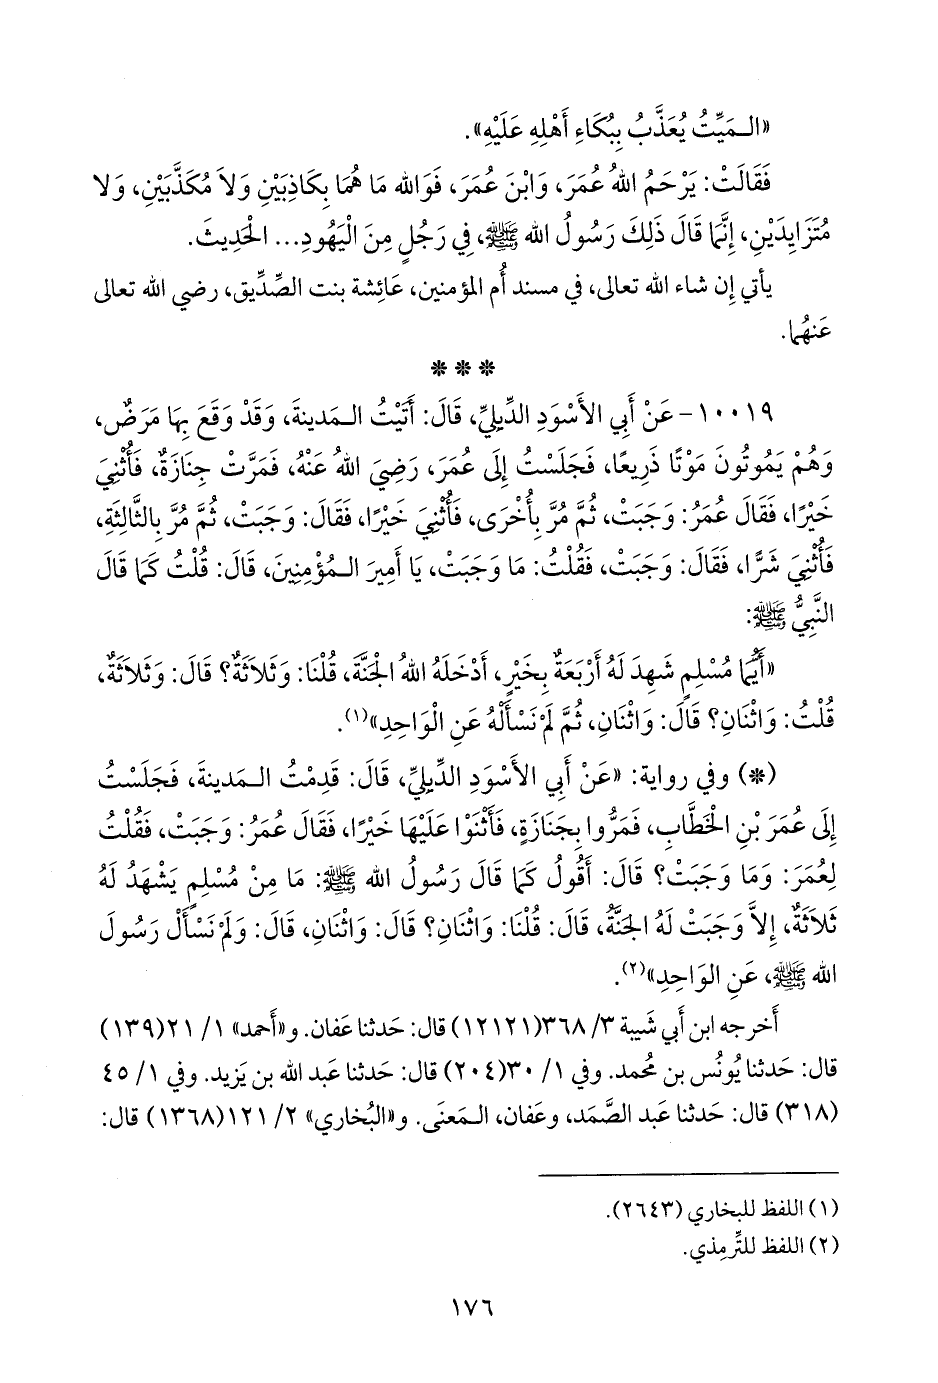 «الـمَيِّتُ يُعَذَّبُ بِبُكَاءِ أَهْلِهِ عَلَيْهِ».
فَقَالَتْ: يَرْحَمُ اللهُ عُمَرَ، وَابْنَ عُمَرَ، فَوَالله مَا هُمَا بِكَاذِبَيْنِ وَلاَ مُكَذَّبَيْنِ، وَلا
مُتَزَايِدَيْنِ، إِنَّمَا قَالَ ذَلِكَ رَسُولُ الله ﷺ، فِي رَجُلٍ مِنَ الْيَهُودِ... الحَدِيثَ.
يأتي إِن شاء الله تعالى، في مسند أُم المؤمنين، عَائِشة بنت الصِّدِّيق، رضي الله تعالى
عَنهُما.
* * *
١٠٠١٩- عَنْ أَبِي الأَسْوَدِ الدِّيلِيِّ، قَالَ: أَتَيْتُ الـمَدِينةَ، وَقَدْ وَقَعَ بِهَا مَرَضٌ،
وَهُمْ يَمُوتُونَ مَوْتًا ذَرِيعًا، فَجَلَسْتُ إِلَى عُمَرَ، رَضِيَ اللهُ عَنْهُ، فَمَرَّتْ جِنَازَةٌ، فَأُثْنِيَ
خَيْرًا، فَقَالَ عُمَرُ: وَجَبَتْ، ثُمَّ مُرَّ بِأُخْرَى، فَأُثْنِيَ خَيْرًا، فَقَالَ: وَجَبَتْ، ثُمَّ مُرَّ بِالثَّالِثَةِ،
فَأُثْنِيَ شَرًّا، فَقَالَ: وَجَبَتْ، فَقُلْتُ: مَا وَجَبَتْ، يَا أَمِيرَ الـمُؤْمِنِينَ، قَالَ: قُلْتُ كَمَا قَالَ
النَّبِيُّ ﷺ:
«أَيُّمَا مُسْلِمٍ شَهِدَ لَهُ أَرْبَعَةٌ بِخَيْرٍ، أَدْخَلَهُ اللهُ الجَنَّةَ، قُلْنَا: وَثَلاَثَةٌ؟ قَالَ: وَثَلاَثَةٌ،
قُلْتُ: وَاثْنَانِ؟ قَالَ: وَاثْنَانِ، ثُمَّ لَمْ نَسْأَلْهُ عَنِ الْوَاحِدِ»(١).
(*) وفي رواية: «عَنْ أَبِي الأَسْوَدِ الدِّيلِيِّ، قَالَ: قَدِمْتُ الـمَدينةَ، فَجَلَسْتُ
إِلَى عُمَرَ بْنِ الخَطَّابِ، فَمَرُّوا بِجَنَازَةٍ، فَأَثْنَوْا عَلَيْهَا خَيْرًا، فَقَالَ عُمَرُ: وَجَبَتْ، فَقُلْتُ
لِعُمَرَ: وَمَا وَجَبَتْ؟ قَالَ: أَقُولُ كَمَا قَالَ رَسُولُ الله ﷺ: مَا مِنْ مُسْلِمٍ يَشْهَدُ لَهُ
ثَلاَثَةٌ، إِلاَّ وَجَبَتْ لَهُ الجَنَّةُ، قَالَ: قُلْنَا: وَاثْنَانِ؟ قَالَ: وَاثْنَانِ، قَالَ: وَلَمْ نَسْأَلْ رَسُولَ
الله ﷺ، عَنِ الوَاحِدِ»(٢).
أَخرجه ابن أَبي شَيبة ٣/ ٣٦٨(١٢١٢١) قال: حَدثنا عَفان. و«أَحمد» ١/ ٢١(١٣٩)
قال: حَدثنا يُونُس بن مُحمد. وفي ١/ ٣٠(٢٠٤) قال: حَدثنا عَبد الله بن يَزيد. وفي ١/ ٤٥
(٣١٨) قال: حَدثنا عَبد الصَّمَد، وعَفان، الـمَعنَى. و«البُخاري» ٢/ ١٢١(١٣٦٨) قال:
(١) اللفظ للبخاري (٢٦٤٣).
(٢) اللفظ للتِّرمِذي.
١٧٦